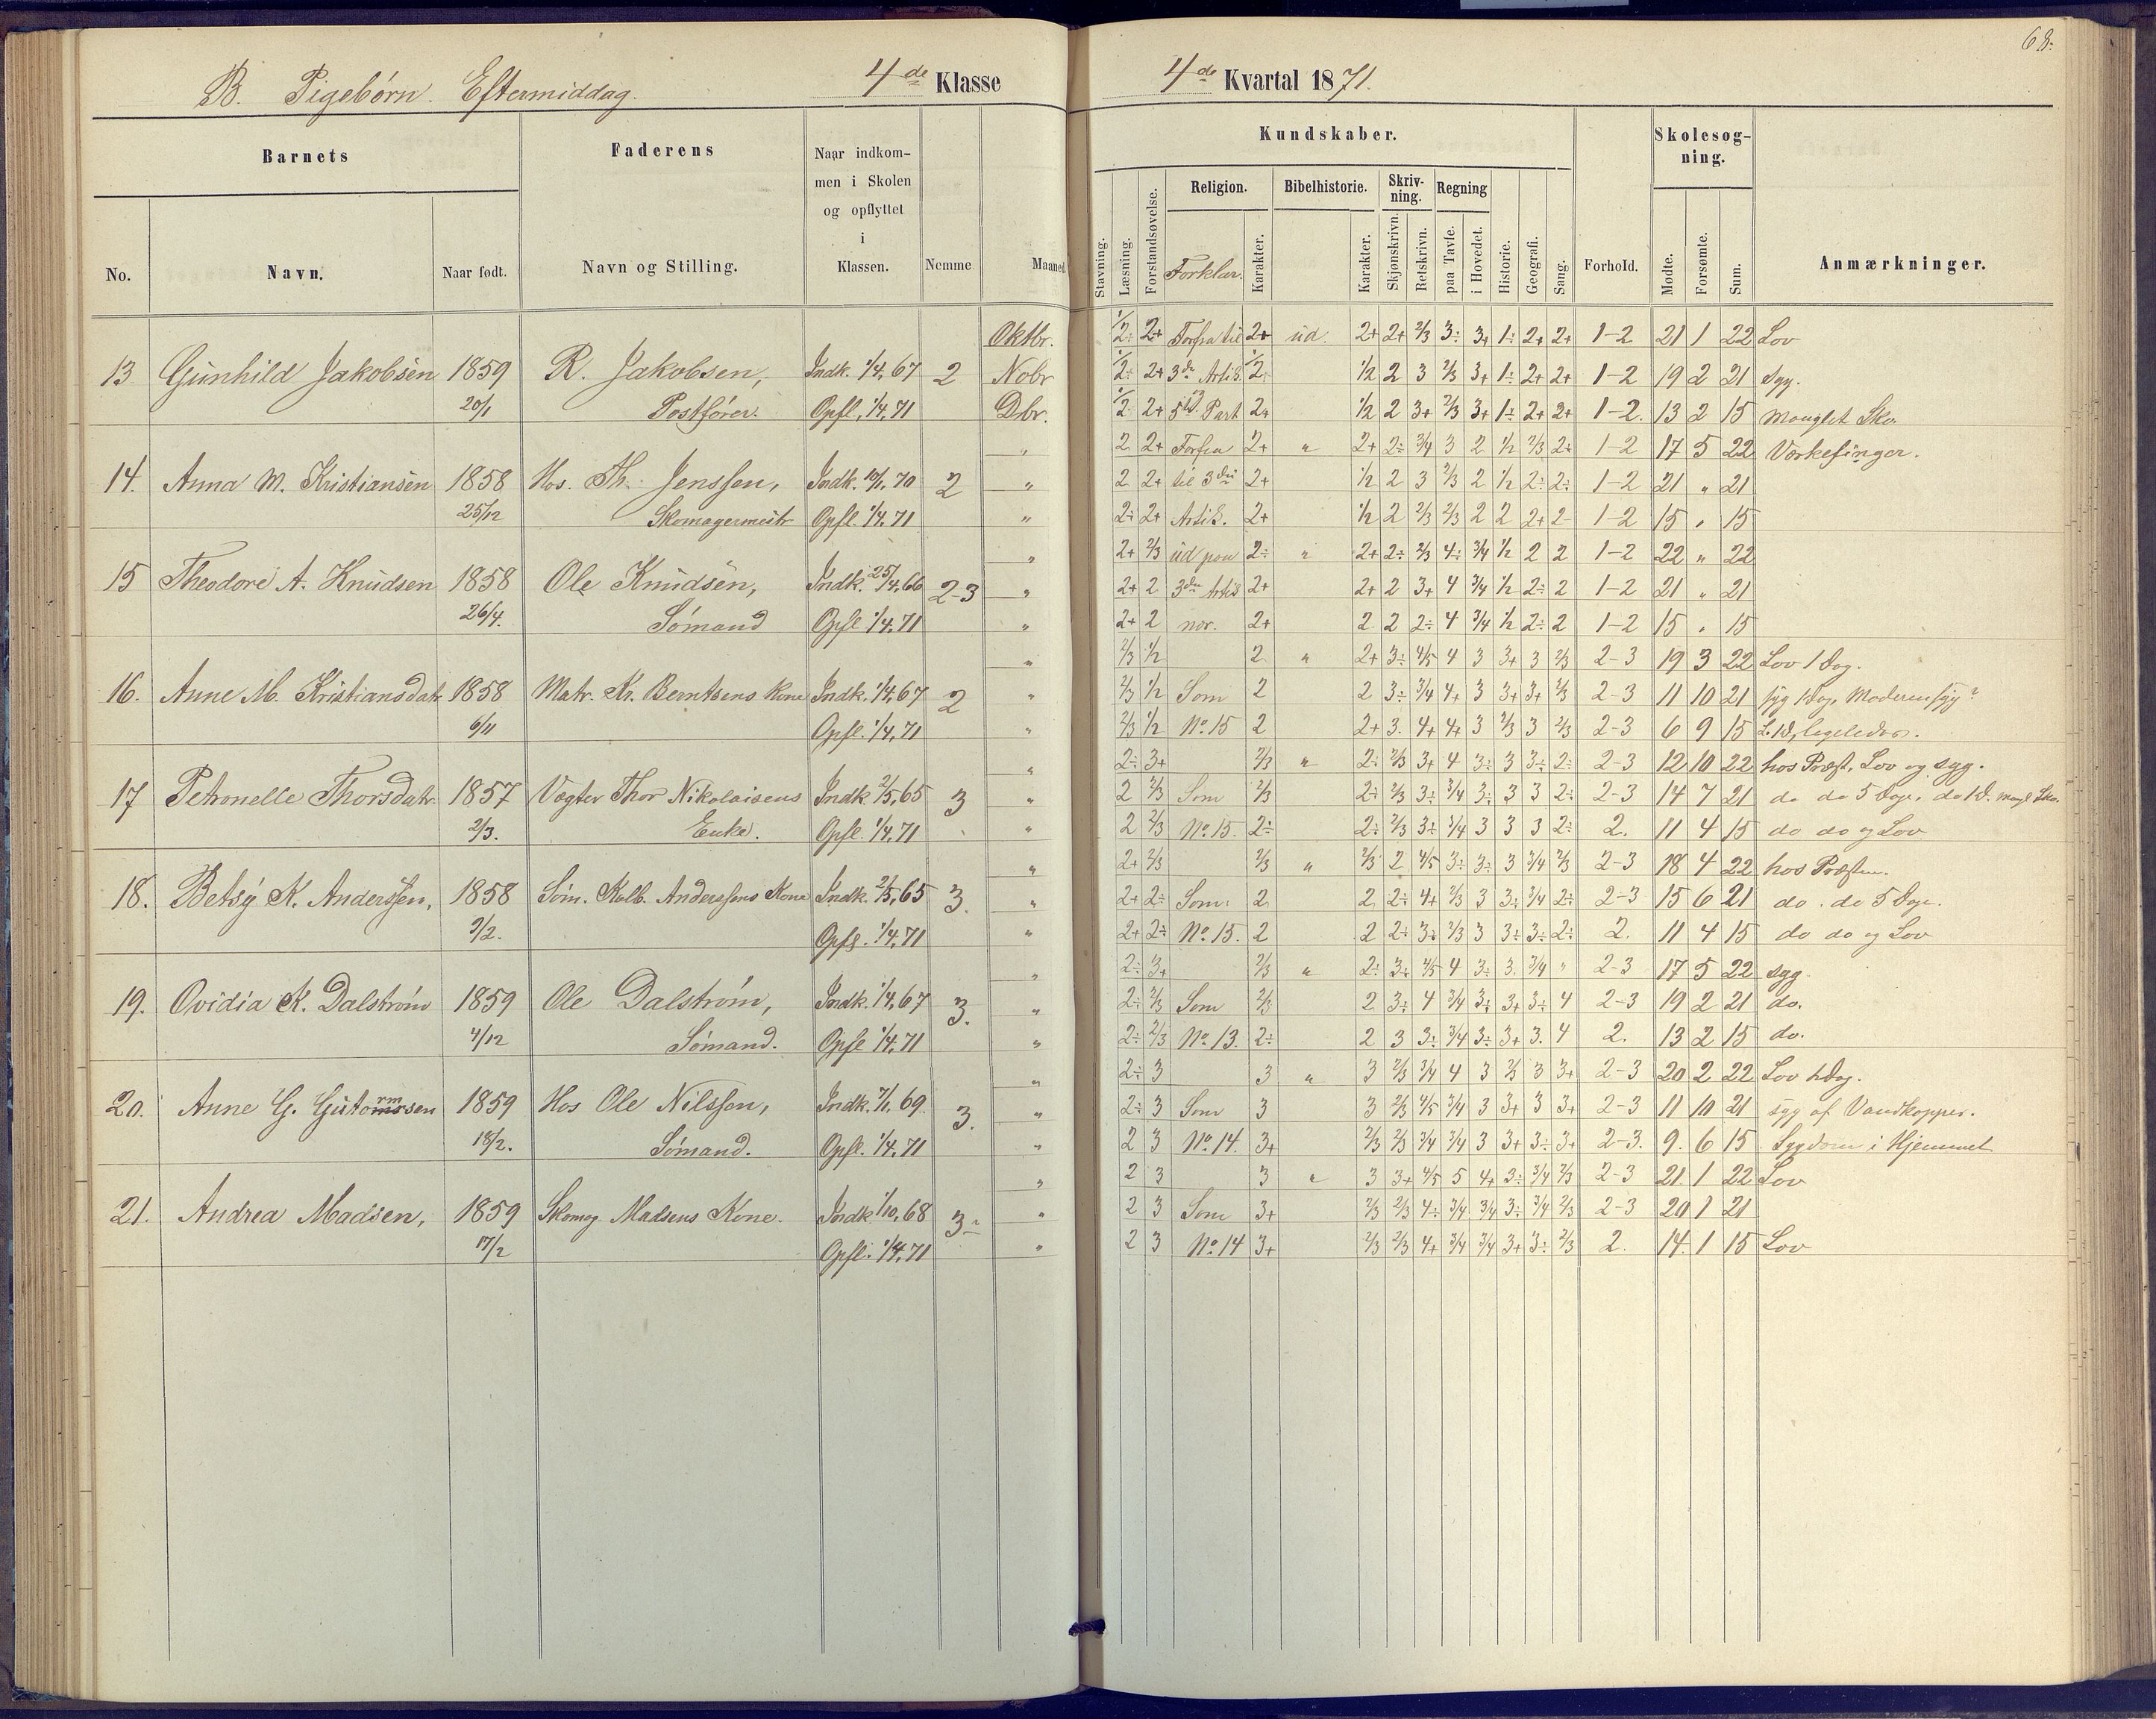 68.
B. Pigebørn. Eftermiddag. 4de Klasse 4de Kvartal 1871.
Barnets Faderens Naar indkommen i Skolen og opflyttet i Klassen. Nemme Maaned
No. Navn. Naar født. Navn og Stilling.
Kundskaber. Skolesøgning.
Stavning. Læsning. Forstandsøvelse. Religion. Forklar. Karakter. Bibelhistorie. Karakter. Skrivning. Skjønskrivn. Retskrivn. Regning paa Tavle. i Hovedet. Historie. Geografi. Sang. Forhold. Mødte. Forsømte. Sum. Anmærkninger.
Oktbr. 1/2÷ 2+ Forfra til 2+ ud. 2+ 2+ 2/3 3÷ 3+ 1÷ 2+ 2+ 1-2 21 1 22 Lov
13 Gunhild Jakobsen 1859 R. Jakobsen, Indk. 1/4, 67 2 Nobr 1/2÷ 2+ 3die Artik. 1/2 1/2 2 3 2/3 3+ 1÷ 2+ 2+ 1-2 19 2 21 syg.
20/1 Postfører. Opfl. 1/4, 71 Dbr. 1/2 2+ 5te Part 2+ 1/2 2 3+ 2/3 3+ 1÷ 2+ 2+ 1-2. 13 2 15 Manglet Sko
" 2 2+ Forfra 2+ " 2+ 2÷ 3/4 3 2 1/2 2/3 2÷ 1-2 17 5 22 Værkefinger.
14. Anna M. Kristiansen 1858 Hos. Th. Jenssen, Indk. 10/1, 70 2 " 2 2+ til 3die 2+ 1/2 2 3 2/3 2 1/2 2÷ 2÷ 1-2 21 " 21
25/12 Skomagermestr Opfl. 1/4, 71 " 2÷ 2+ Artik. 2+ 1/2 2 2/3 2/3 2 2 2+ 2- 1-2 15 " 15
" 2+ 2/3 ud paa 2÷ " 2+ 2÷ 2/3 4÷ 3/4 1/2 2 2 1-2 22 " 22
15 Theodore A. Knudsen 1858 Ole Knudsen, Indk. 25/4, 66 2-3 " 2+ 2 3die Artik 2+ 2+ 2 3+ 4 3/4 1/2 2÷ 2 1-2 21 " 21
26/4. Sømand Opfl 1/4, 71 " 2+ 2 nær. 2+ 2 2 2÷ 4 3/4 1/2 2÷ 2 1-2 15 " 15
" 2/3 1/2 2 " 2+ 3÷ 4/5 4 3 3+ 3 2/3 2-3 19 3 22 Lov 1 Dag.
16. Anne M. Kristiansdatr 1858 Matr. Kr. Berntsens Kone Indk. 1/4, 67 2 " 2/3 1/2 Som 2 2 3÷ 3/4 4+ 3 3+ 3+ 2/3 2-3 11 10 21 syg 1 Dag, Moderen syg?
6/11 Opfl. 1/4, 71 " 2/3 1/2 No. 15 2 2+ 3. 4+ 4+ 3 2/3 3 2/3 2-3 6 9 15 L. 1 D, ligeledes.
" 2÷ 3+ 2/3 " 2÷ 2/3 3+ 4 3÷ 3 3÷ 2÷ 2-3 12 10 22 hos Præst, Lov og syg.
17 Petronelle Thorsdatr. 1857 Vægter Thor Nikolaisens Indk 2/5, 65 3 " 2 2/3 Som 2/3 2÷ 2/3 3÷ 3/4 3÷ 3 3 2÷ 2-3 14 7 21 do do 5 Dage, do 1 D. Mangl Sko.
2/3. Enke. Opfl. 1/4, 71 " 2 2/3 No. 15. 2÷ 2÷ 2/3 3÷ 3/4 3 3 3 2÷ 2. 11 4 15 do do og Lov
" 2+ 2/3 2/3 " 2/3 2 4/5 3÷ 3÷ 3 3/4 2/3 2-3 18 4 22 hos Præsten.
18. Betsy K. Anderssen, 1858 Søm. Kolb. Anderssens Kone Indk. 2/5, 65 3. " 2+ 2÷ Som 2 2 2÷ 4+ 2/3 3 3÷ 3/4 2÷ 2-3 15 6 21 do. do 5 Dage.
2/2. Opfl. 1/4, 71 " 2+ 2÷ No. 15. 2 2 2÷ 3÷ 2/3 3 3÷ 3÷ 2÷ 2. 11 4 15 do do og Lov
" 2÷ 3+ 2/3 " 2÷ 3+ 4/5 4 3÷ 3. 3/4 " 2-3 17 5 22 syg
19. Ovidia K. Dalstrøm 1859 Ole Dalstrøm, Indk. 1/4, 67 3. " 2÷ 2/3 Som 2/3 2 3÷ 4 3/4 3÷ 3+ 3÷ 4 2-3 19 2 21 do.
4/12 Sømand. Opfl 1/4, 71 " 2÷ 2/3 No. 13. 2÷ 2 3 3÷ 3/4 3÷ 3+ 3. 4 2. 13 2 15 do.
" 2÷ 3 3 " 3 2/3 3/4 4 3 2/3 3 3+ 2-3 20 2 22 Lov 1 Dag.
20. Anne G. Gutormsen 1859 Hos Ole Nilssen, Indk. 7/1, 69. 3. " 2÷ 3 Som 3 3 2/3 4/5 3/4 3 3+ 3 3+ 2-3 11 10 21 syg af Vandkopper.
18/2. Sømand. Opfl. 1/4, 71 " 2 3 No. 14. 3+ 2/3 2/3 3/4 3/4 3 3+ 3÷ 3+ 2-3. 9. 6 15 Sygdom i Hjemmet
" 2 3 3 " 3 3+ 4/5 5 4+ 3÷ 3/4 2/3 2-3 21 1 22 Lov
21. Andrea Madsen, 1859 Skomag. Madsens Kone. Indk 1/10, 68 3÷ " 2 3 Som 3+ 2/3 2/3 4÷ 3/4 3/4 3÷ 3/4 2/3 2-3 20 1 21
17/2 Opfl. 1/4, 71 " 2 3 No. 14 3+ 2/3 2/3 4+ 3/4 3/4 3+ 3÷ 2/3 2. 14. 1 15 Lov